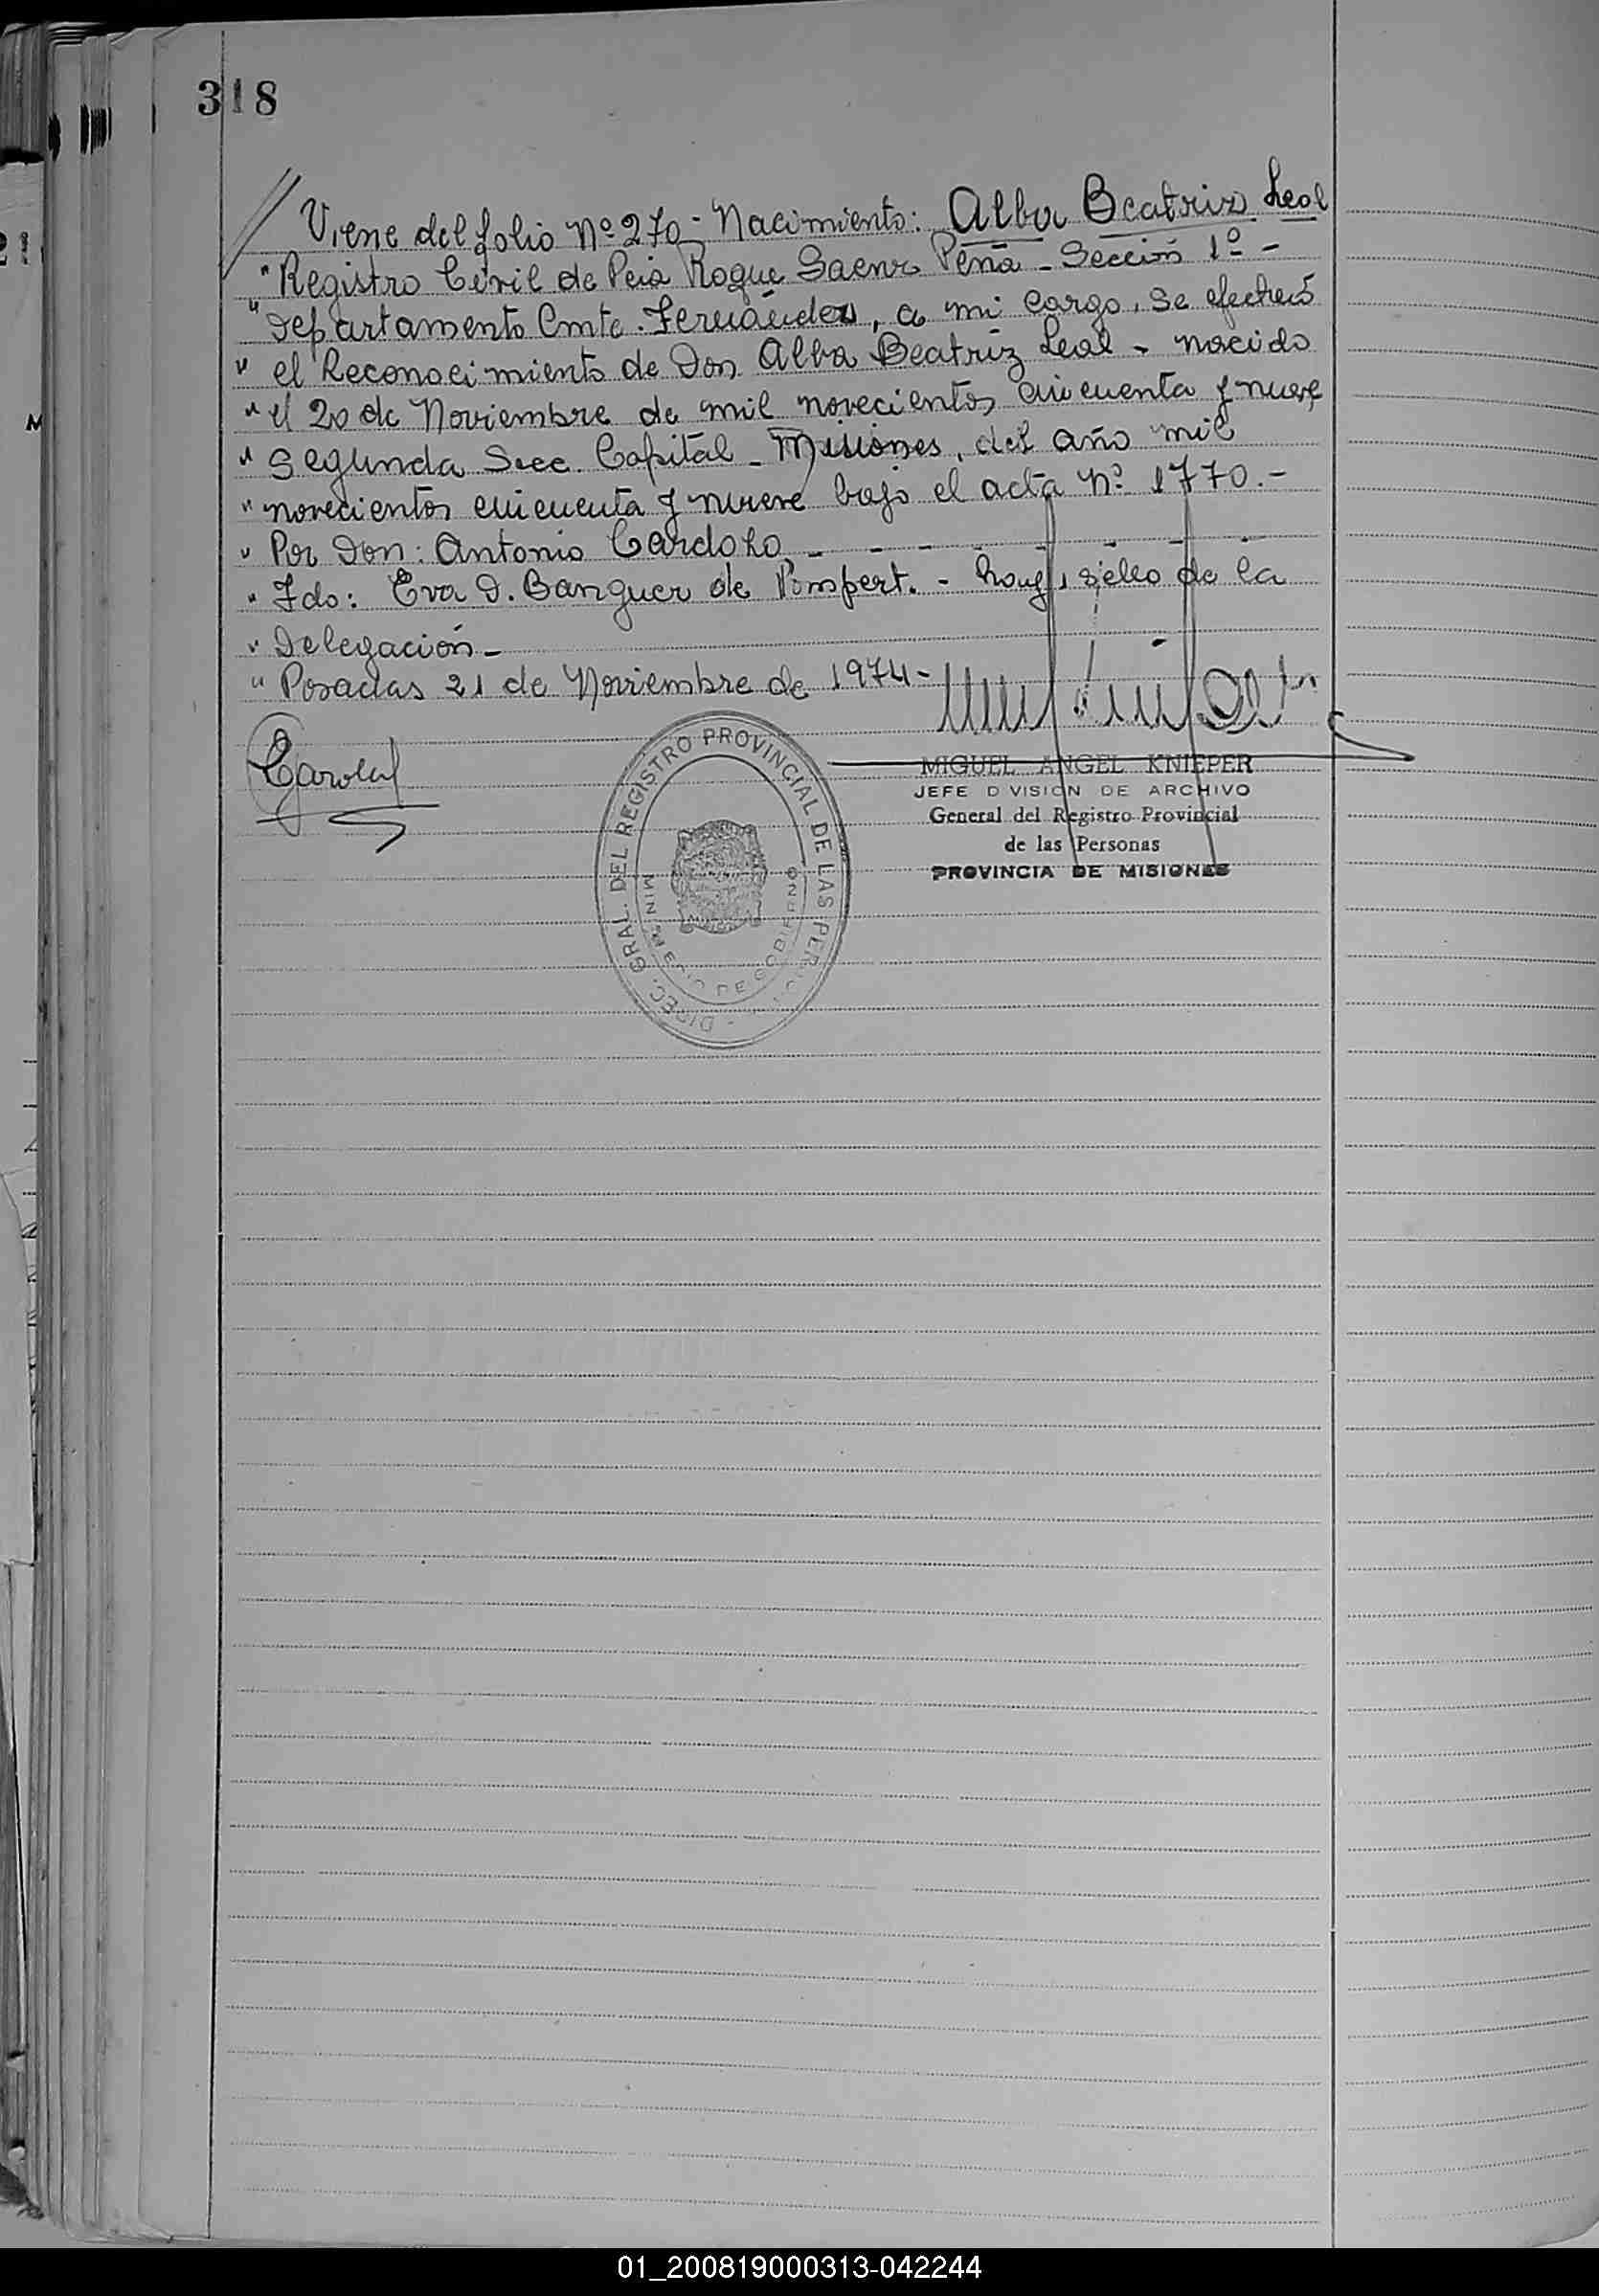 318
// Viene del folio Nº 270 - Nacimiento: Alba Beatriz Leal
" Registro Civil de Pcia Roque Saenz Peña - Sección 1º -
" Departamento Cmte. Fernández, a mi cargo, se efectuó
" el Reconocimiento de Don Alba Beatriz Leal - nacido
" el 20 de Noviembre de mil novecientos cincuenta y nueve
" Segunda Secc. Capital - Misiones, del año mil
" novecientos cincuenta y nueve bajo el acta Nº 1770.-
" Por Don: Antonio Cardozo - - - - - - - -
" Fdo: Eva D. Banguer de Pompert. - Hay 1 sello de la
" Delegación -
" Posadas 21 de Noviembre de 1974 -
MIGUEL ANGEL KNIEPER
JEFE D VISION DE ARCHIVO
General del Registro Provincial
de las Personas
PROVINCIA DE MISIONES
DIREC. GRAL. DEL REGISTRO PROVINCIAL DE LAS PER
MINISTERIO DE GOBIERNO
01_200819000313-042244